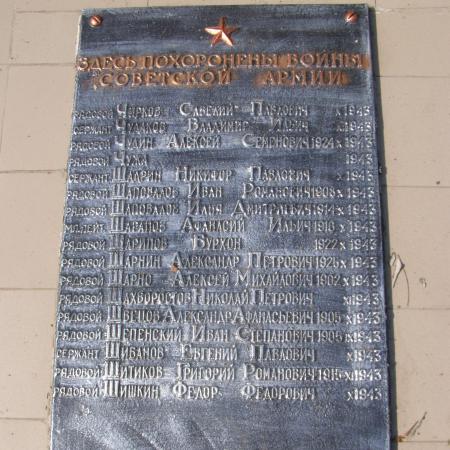 ЗДЕСЬ ПОХОРОНЕНЫ ВОИНЫ
СОВЕТСКОЙ АРМИИ
РЯДОВОЙ ЧИРКОВ ПАВЛОВИЧ X1943
СЕРЖАНТ ВЛАДИМИР ИЛЬИЧ X1943
РЯДОВОЙ ЧУДИН АЛЕКСЕЙ 1924 X1943
РЯДОВОЙ ЧУЖА 1943
СЕРЖАНТ ШАДРИН НИКИФОР ПАВЛОВИЧ X1943
РЯДОВОЙ ШАПОЧАЛОВ ИВАН РОМАНОВИЧ 1908 X1943
РЯДОВОЙ ШАПОВАЛОВ ИЛЬЯ ДМИТРИЕВИЧ 1914 X1943
МЛ.ЛЕЙТ. ШАРАПОВ АФАНАСИЙ ИЛЬИЧ 1910 X1943
РЯДОВОЙ ШАРИПОВ БУРХОН 1922 X1943
РЯДОВОЙ ШАРНИН АЛЕКСАНДР ПЕТРОВИЧ 1925 X1943
РЯДОВОЙ ШАРНО АЛЕКСЕЙ МИХАЙЛОВИЧ 1902 X1943
РЯДОВОЙ ШАХВОРОСТОВ НИКОЛАЙ ПЕТРОВИЧ XI1943
РЯДОВОЙ ШВЕЦОВ АЛЕКСАНДР АФАНАСЬЕВИЧ 1905 X1943
РЯДОВОЙ ШЕПЕНСКИЙ ИВАН СТЕПАНОВИЧ 1906 X1943
СЕРЖАНТ ШИБАНОВ ЕВГЕНИЙ ПАВЛОВИЧ X1943
РЯДОВОЙ ШИТИКОВ ГРИГОРИЙ РОМАНОВИЧ 1915 X1943
РЯДОВОЙ ШИШКИН ФЕДОР ФЕДОРОВИЧ X1943